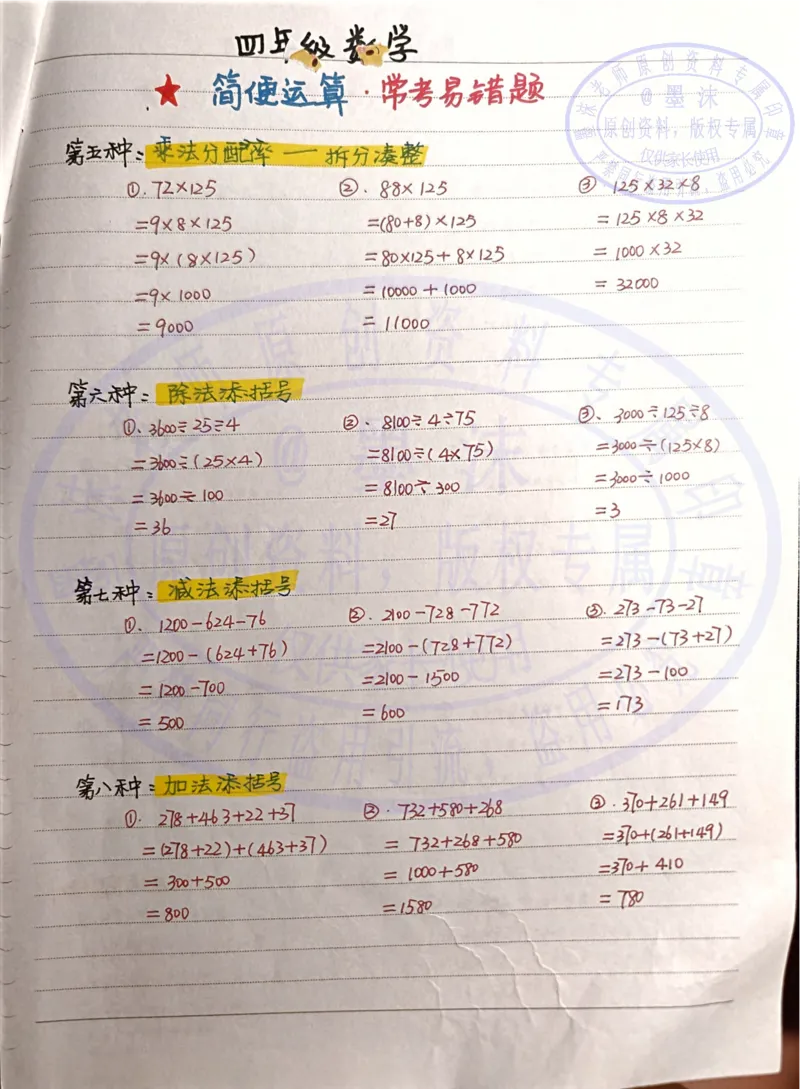 四年级数学
★ 简便运算·常考易错题
墨沫老师原创资料专属印章
@墨沫
原创资料，版权专属
仅供亲长使用
第五种：乘法分配率 — 拆分凑整
①. 72×125
=9×8×125
=9×(8×125)
=9×1000
=9000
②. 88×125
=(80+8)×125
=80×125+8×125
=10000+1000
=11000
③ 125×32×8
=125×8×32
=1000×32
=32000
第六种：除法添括号
①. 3600÷25÷4
=3600÷(25×4)
=3600÷100
=36
②. 8100÷4÷75
=8100÷(4×75)
=8100÷300
=27
③. 3000÷125÷8
=3000÷(125×8)
=3000÷1000
=3
第七种：减法添括号
①. 1200-624-76
=1200-(624+76)
=1200-700
=500
②. 2100-728-772
=2100-(728+772)
=2100-1500
=600
③. 273-73-27
=273-(73+27)
=273-100
=173
第八种：加法添括号
①. 278+463+22+37
=(278+22)+(463+37)
=300+500
=800
②. 732+580+268
=732+268+580
=1000+580
=1580
③. 370+261+149
=370+(261+149)
=370+410
=780
@墨沫
原创资料，版权专属